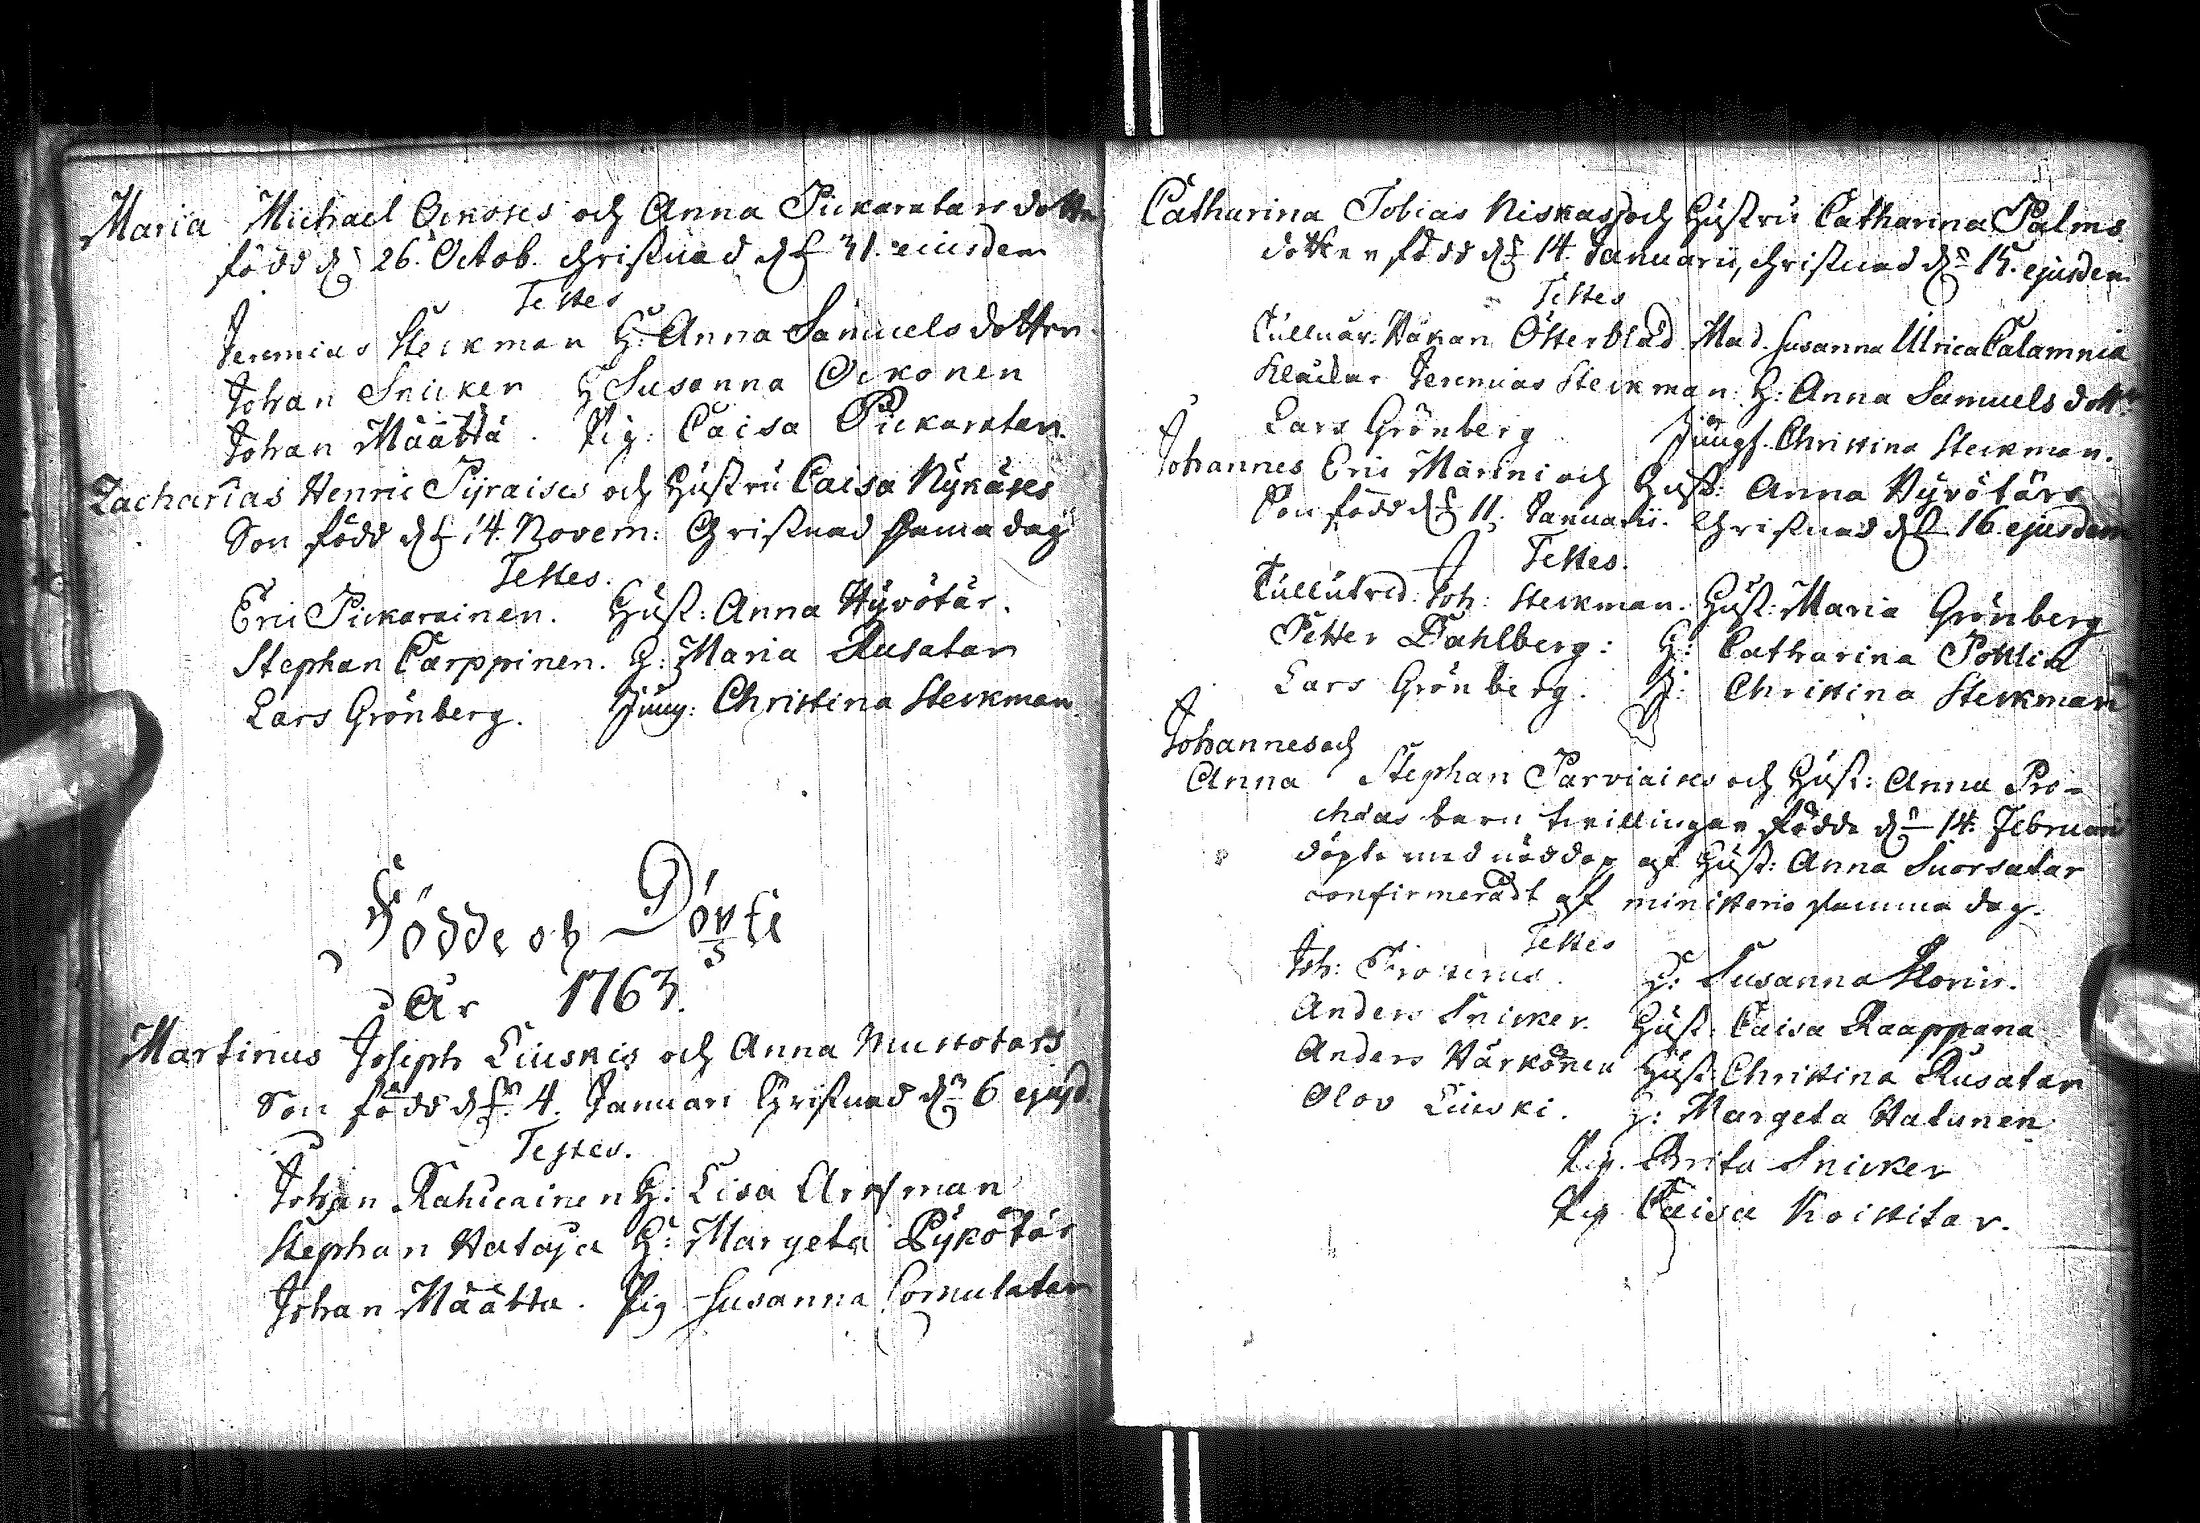 Maria Michael Ockoses och Anna Pickaratars dotter
född dn 26. Octob. christnad dn 31. eiusdem
Testes
Jeremias Steckman H: Anna Samuels dotter.
Johan Snicker H Susanna Ockonen
Johan Määttä. Pig: Caisa Pickaratar.
Zacharias Henric Pyraises och Hustru Caisa Nykäses
Son född dn 14. Novem: Christnad sama dag
Testes.
Eric Pickarainen. Hust: Anna Hyvötär.
Stephan Carppinen. H: Maria Rusatar
Lars Grönberg. Jung: Christina Steckman.
Födde och Döpte
År 1763.
Martinus Joseph Liuskis och Anna Mustotars
Son född dn 4. Januari Christnad dn 6 ejusd.
Testes.
Johan Rahicainen H: Lisa
Stephan Hataja H: Margeta Pykötär
Johan Määtta. Pig Susanna Comulatar
Catharina Tobias Niskas och Hustru Catharina Palms
dotter född dn 14. Januarii, christnad dn 15. ejusdem.
Testes
Håkan Österblad Mad. Susanna Ulrica Calamnia
Jeremias Steckman H: Anna Samuels dott:
Lars Grönberg Jungf. Christina Steckman.
Johannes Eric Märini och Hust: Anna Hyvötärs
Son född dn 11. Januarii. Christnad dn 16. ejusdem
Testes.
Joh: Steckman. Hust: Maria Grönberg
Petter Dahlberg: H: Catharina
Lars Grönberg. J: Christina Steckman
Johannes och
Anna Stephan Parviaises och Hust: Anna Pro-
barn tvillingar födde dn 14. Februari
döpte med nöddop af Hust: Anna Suorsatar
confirmeradt af ministerio samma dag.
Testes
Joh: H: Susanna
Anders Snicker. Hust: Caisa Raappana
Anders Härkönen Hust: Christina Rusatar
Olov Liuski. H: Margeta Hatunen
Pig. Brita Snicker
Pig Caisa Koistitar.